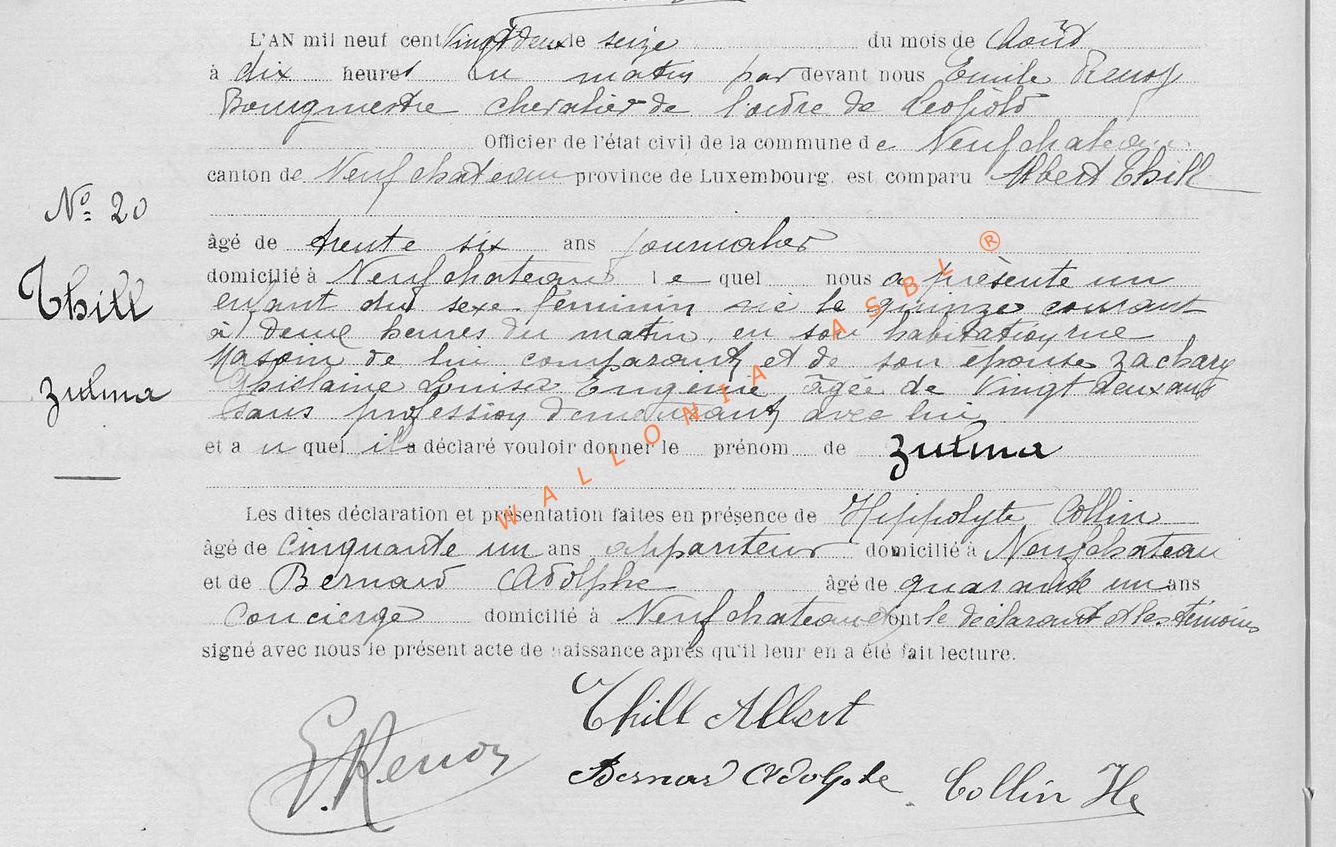 L'AN mil neuf cent vingt deux le seize du mois de Août
à dix heures du matin par devant nous Emile Renoz
Bourgmestre chevalier de l'ordre de Leopold
Officier de l'état civil de la commune de Neufchateau
canton de Neufchateau province de Luxembourg est comparu Albert Thill
N° 20
âgé de trente six ans journalier
Thill
domicilié à Neufchateau le quel nous a présente un
enfant du sexe féminin né le quinze courant
à deux heures du matin, en son habitation rue
de lui comparant et de son epouse Zachary
Zulma
Ghislaine Louise Eugénie âgée de vingt deux ans
sans profession demeurant avec lui
et au quel il a déclaré vouloir donner le prénom de Zulma
Les dites déclaration et présentation faites en présence de Hippolyte Collin
âgé de cinquante un ans appariteur domicilié à Neufchateau
et de Bernard Adolphe âgé de quarante un ans
concierge domicilié à Neufchateau ont le déclarant et les témoins
signé avec nous le présent acte de naissance après qu'il leur en a été fait lecture.
Thill Albert
E. Renoz
Bernard Adolphe Collin He
WALLONIA ASBL ®